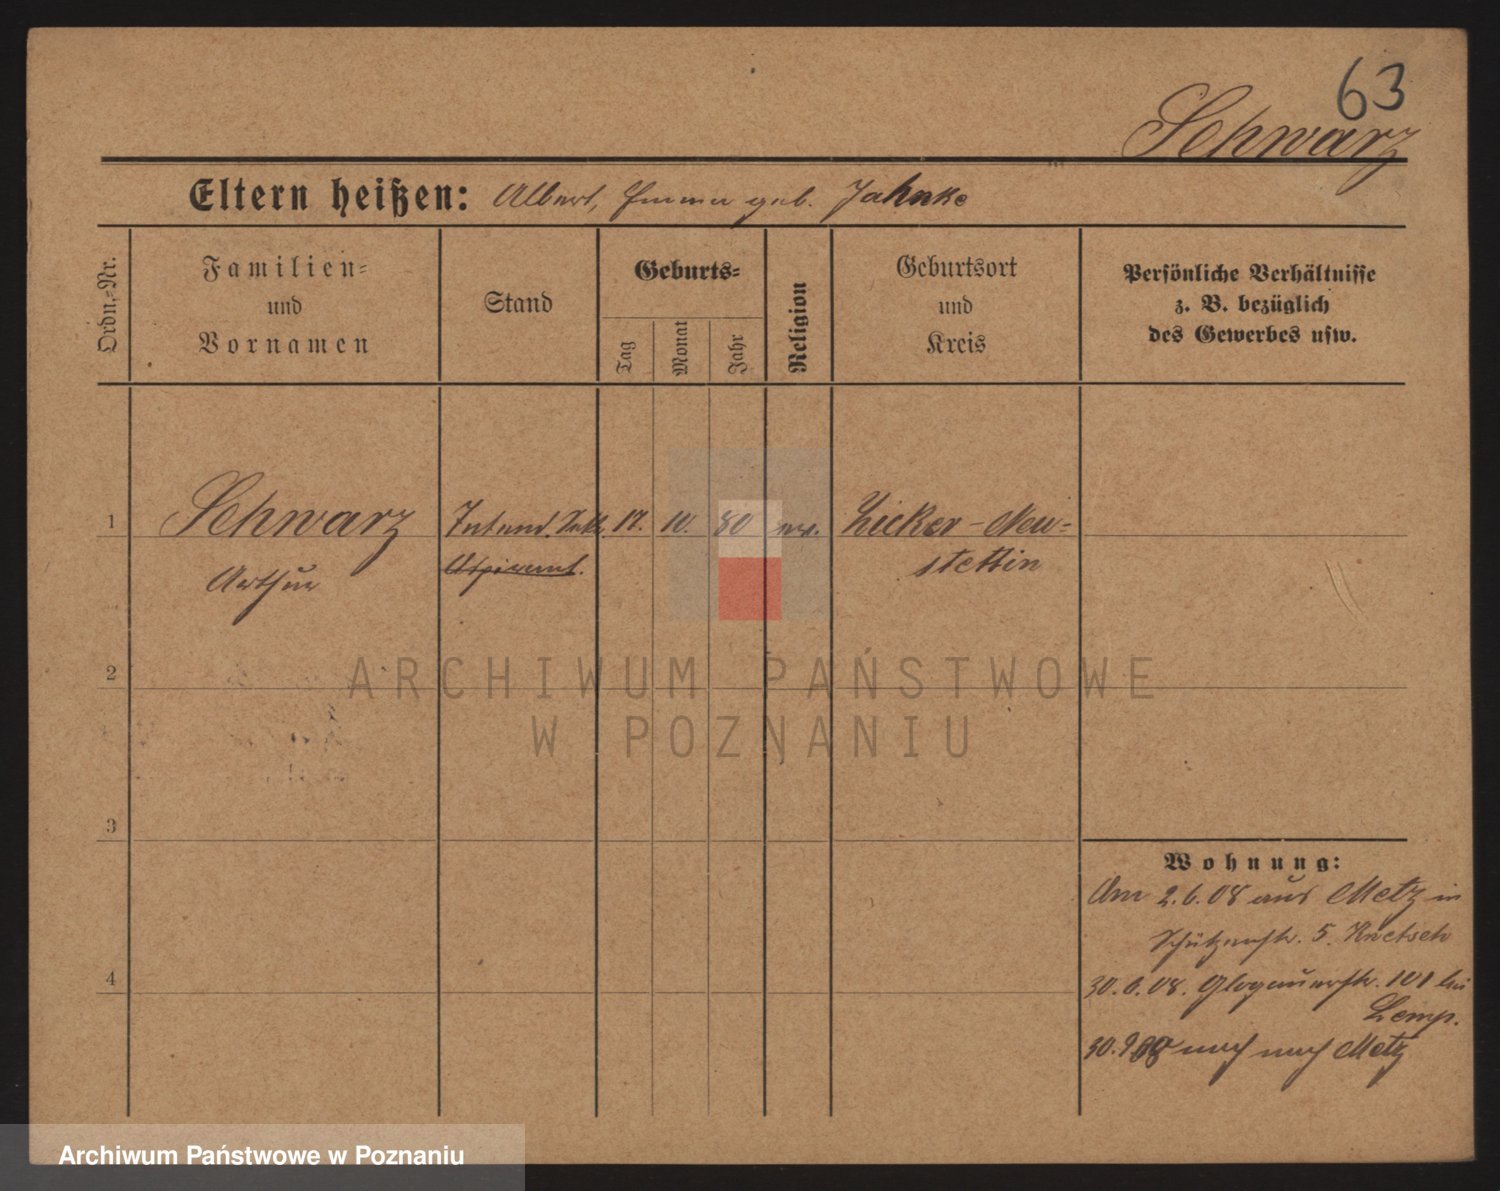 63
Schwarz
Eltern heißen: Albert, Emma geb. Jahnke
Ordn.-Nr.
Familien-
und
Vornamen
Stand
Geburts-
Tag
Monat
Jahr
Religion
Geburtsort
und
Kreis
Persönliche Verhältnisse
z. B. bezüglich
des Gewerbes usw.
1
Schwarz
Arthur
Intend. Sekr.
Aspirant.
17.
10.
80
ev.
Zicker-Neu=
stettin
2
3
4
Wohnung:
Am 2.6.08 aus Metz in
Schützenstr. 5.
30.6.08. Glogauerstr. 101 bei
Lemp.
30.9 08 nach Metz
ARCHIWUM PAŃSTWOWE
W POZNANIU
Archiwum Państwowe w Poznaniu